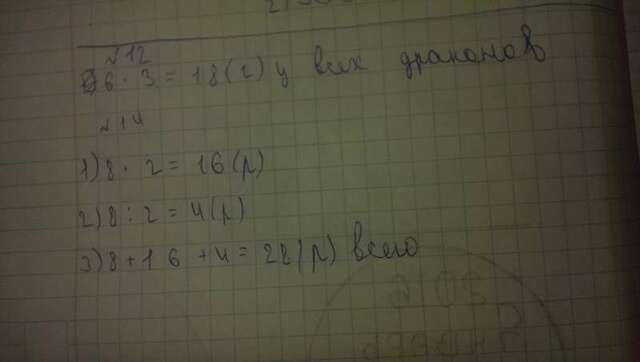 №12
6 · 3 = 18 (г) у всех драконов
№14
1) 8 · 2 = 16 (р)
2) 8 : 2 = 4 (р)
3) 8 + 16 + 4 = 28 (р) всего